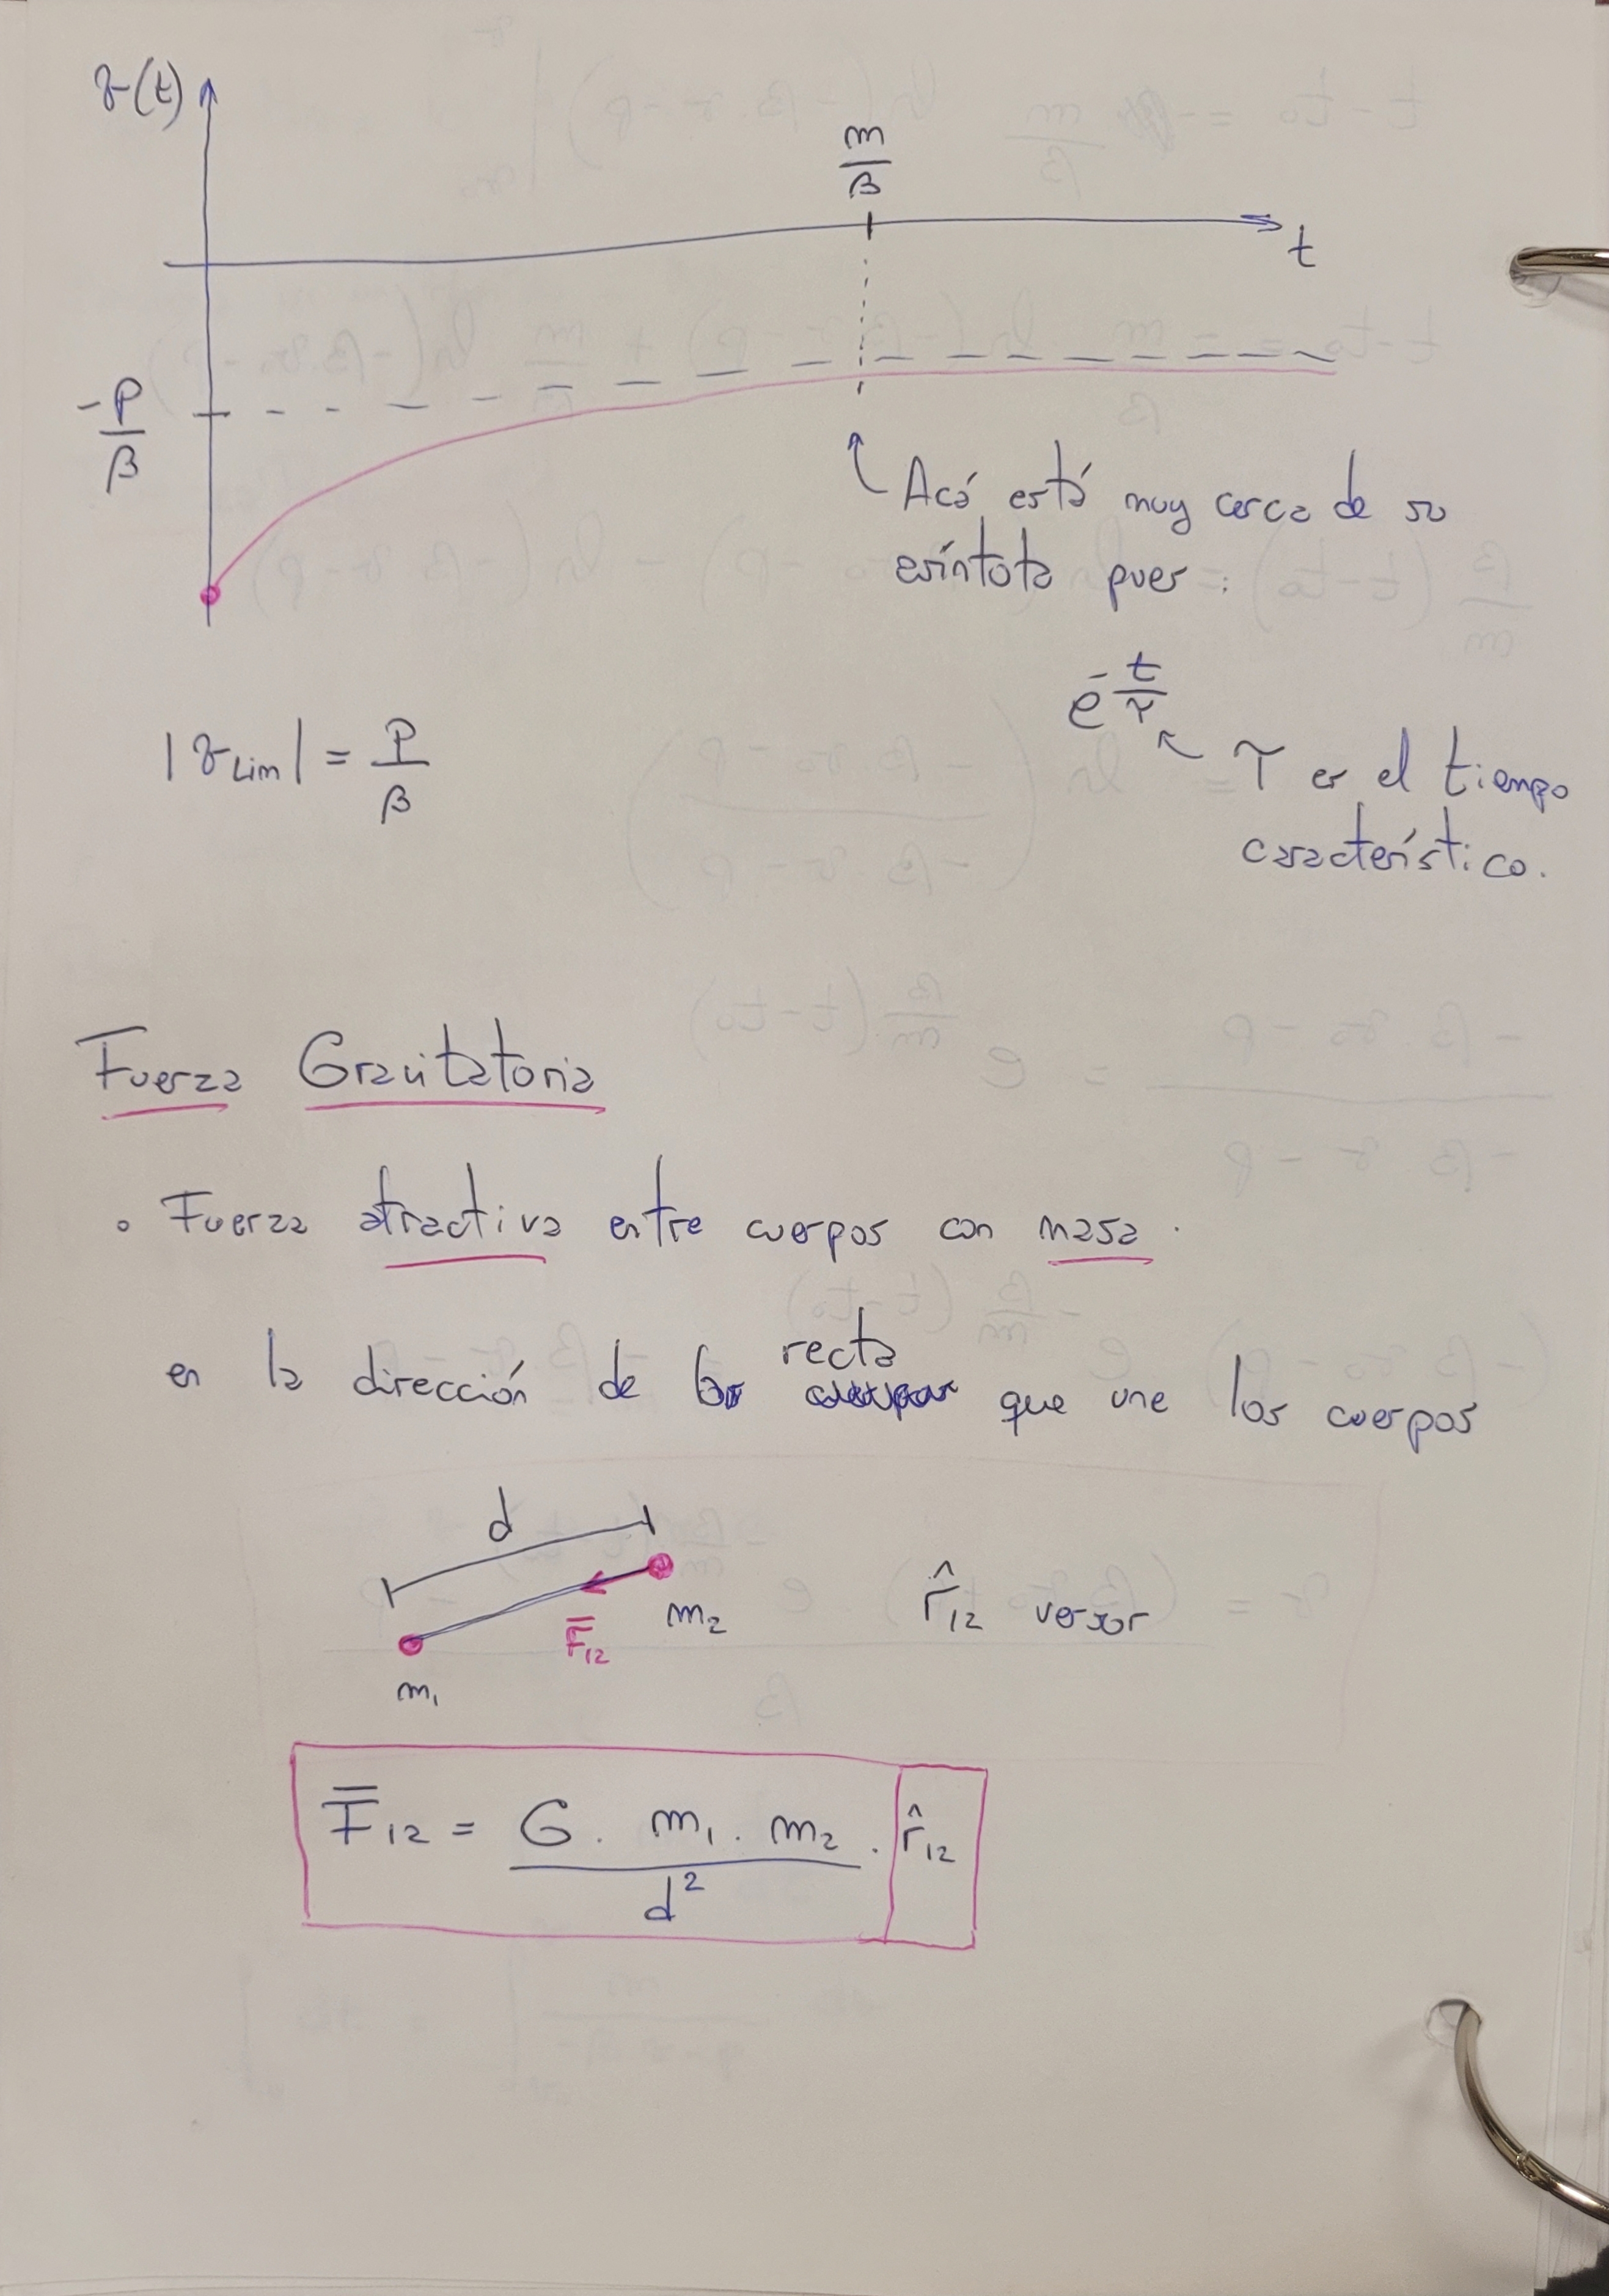 v(t)
m/β
t
-P/β
Acá está muy cerca de su
asíntota pues:
e^(-t/τ)
|v_Lim| = P/β
τ es el tiempo
característico.
Fuerza Gravitatoria
• Fuerza atractiva entre cuerpos con masa.
recta
en la dirección de la que une los cuerpos
d
m₂
r̂₁₂ versor
F̄₁₂
m₁
F̄₁₂ = G . m₁ . m₂ / d² . r̂₁₂